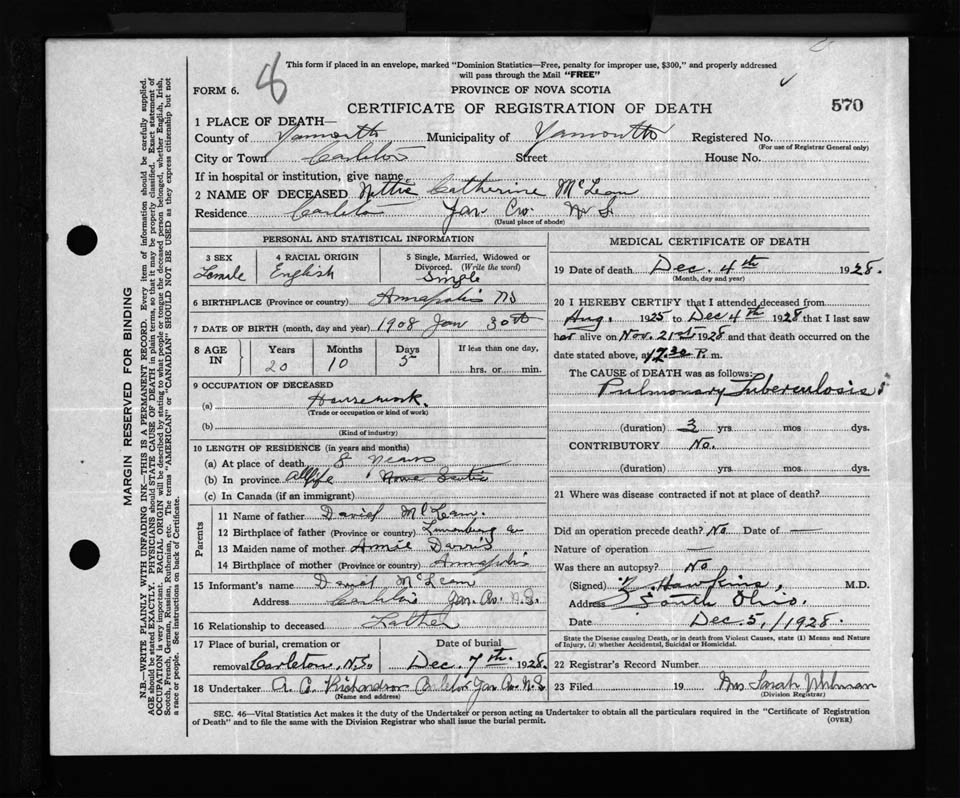 8
This form if placed in an envelope, marked "Dominion Statistics—Free, penalty for improper use, $300," and properly addressed
will pass through the Mail "FREE"
FORM 6.
PROVINCE OF NOVA SCOTIA
CERTIFICATE OF REGISTRATION OF DEATH
570
1 PLACE OF DEATH—
County of Yarmouth Municipality of Yarmouth Registered No.
(For use of Registrar General only)
City or Town Carleton Street House No.
If in hospital or institution, give name
2 NAME OF DECEASED Nettie Catherine McLean
Residence Carleton Yar. Co. N.S.
(Usual place of abode)
PERSONAL AND STATISTICAL INFORMATION
3 SEX
Female
4 RACIAL ORIGIN
English
5 Single, Married, Widowed or
Divorced. (Write the word)
Single
6 BIRTHPLACE (Province or country) Annapolis NS
7 DATE OF BIRTH (month, day and year) 1908 Jan 30th
8 AGE IN
Years Months Days If less than one day,
20 10 5 hrs. or min.
9 OCCUPATION OF DECEASED
(a) Housework.
(Trade or occupation or kind of work)
(b)
(Kind of industry)
10 LENGTH OF RESIDENCE (in years and months)
(a) At place of death 8 years
(b) In province All life Nova Scotia
(c) In Canada (if an immigrant)
Parents
11 Name of father David McLean.
12 Birthplace of father (Province or country) Lunenburg Co
13 Maiden name of mother Annie
14 Birthplace of mother (Province or country) Annapolis
15 Informant's name David McLean
Address Carleton Yar. Co. N.S.
16 Relationship to deceased Father
17 Place of burial, cremation or Date of burial
removal Carleton, N.S. Dec. 7th. 1928
18 Undertaker A. C. Richardson Carleton Yar. Co. N.S
(Name and address)
MEDICAL CERTIFICATE OF DEATH
19 Date of death Dec. 4th 1928.
(Month, day and year)
20 I HEREBY CERTIFY that I attended deceased from
Aug. 1925 to Dec 4th 1928 that I last saw
her alive on Nov. 21st 1928 and that death occurred on the
date stated above, at 7.30 P. m.
The CAUSE OF DEATH was as follows:
Pulmonary Tuberculosis
(duration) 3 yrs mos dys.
CONTRIBUTORY No.
(duration) yrs mos dys.
21 Where was disease contracted if not at place of death?
Did an operation precede death? No Date of —
Nature of operation —
Was there an autopsy? No
(Signed) Hawkins, M.D.
Address South Ohio.
Date Dec. 5,/1928.
State the Disease causing Death, or in death from Violent Causes, state (1) Means and Nature
of Injury, (2) whether Accidental, Suicidal or Homicidal.
22 Registrar's Record Number
23 Filed 19 Mrs Sarah
(Division Registrar)
SEC. 46—Vital Statistics Act makes it the duty of the Undertaker or person acting as Undertaker to obtain all the particulars required in the "Certificate of Registration
of Death" and to file the same with the Division Registrar who shall issue the burial permit.
(OVER)
MARGIN RESERVED FOR BINDING
N.B.—WRITE PLAINLY WITH UNFADING INK—THIS IS A PERMANENT RECORD. Every item of information should be carefully supplied.
AGE should be stated EXACTLY. PHYSICIANS should STATE CAUSE OF DEATH in plain terms, so that it may be properly classified. Exact statement of
OCCUPATION is very important. RACIAL ORIGIN will be described by stating to what people or tongue the deceased person belonged, whether English, Irish,
Scotch, French, German, Russian, Ruthenian, etc. The terms "AMERICAN" or "CANADIAN" SHOULD NOT BE USED as they express citizenship but not
a race or people. See instructions on back of Certificate.